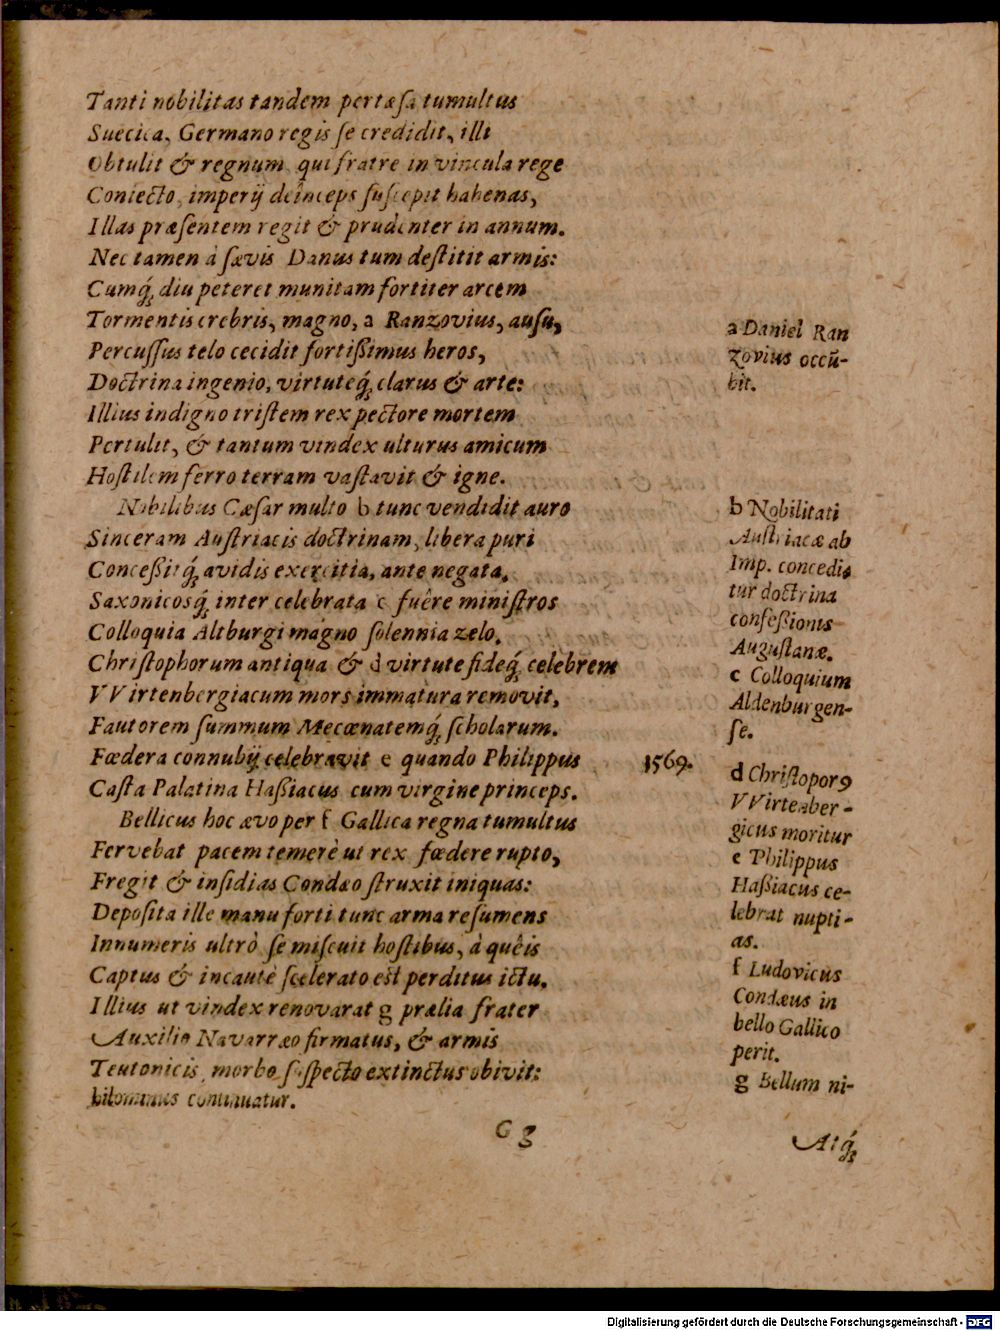 Tanti nobilitas tandem pertæſa tumultus
Suecica, Germano regis ſe credidit, illi
Obtulit & regnum, qui fratre in vincula rege
Coniecto, imperij deinceps ſuſcepit habenas,
Illas præſentem regit & prudenter in annum.
Nec tamen à ſævis Danus tum deſtitit armis:
Cumq́ꝫ diu peteret munitam fortiter arcem
Tormentis crebris, magno, a Ranzovius, auſu,
Percuſſus telo cecidit fortißimus heros,
Doctrina ingenio, virtuteq́ꝫ clarus & arte:
Illius indigno triſtem rex pectore mortem
Pertulit, & tantum vindex ulturus amicum
Hoſtilem ferro terram vaſtavit & igne.
a Daniel Ran
zovius occũ-
bit.
Nobilibus Cæſar multo b tunc vendidit auro
Sinceram Auſtriacis doctrinam, libera puri
Conceßitq́ꝫ avidis exercitia, ante negata,
Saxonicosq́ꝫ inter celebrata c fuêre miniſtros
Colloquia Altburgi magno ſolennia zelo.
Chriſtophorum antiqua & d virtute fideq́ꝫ celebrem
VVirtenbergiacum mors immatura removit,
Fautorem ſummum Mecœnatemq́ꝫ ſcholarum.
b Nobilitati
Auſtriacæ ab
Imp. concedi⸗
tur doctrina
confeßionis
Auguſtanæ.
c Colloquium
Aldenburgen-
ſe.
Fœdera connubij celebravit e quando Philippus 1569.
Caſta Palatina Haßiacus cum virgine princeps.
Bellicus hoc ævo per f Gallica regna tumultus
Fervebat pacem temerè ut rex fœdere rupto,
Fregit & inſidias Condæo ſtruxit iniquas:
Depoſita ille manu forti tunc arma reſumens
Innumeris ultrò ſe miſcuit hoſtibus, à quêis
Captus & incautè ſcelerato eſt perditus ictu.
Illius ut vindex renovarat g prælia frater
Auxilio Navarræo firmatus, & armis
Teutonicis, morbo ſuſpecto extinctus obivit:
d Chriſtoporꝰ
VVirtenber-
gicus moritur
e Philippus
Haßiacus ce-
lebrat nupti-
as.
f Ludovicus
Condæus in
bello Gallico
perit.
g Bellum ni-
hilominus continuatur.
G g
Atq́ꝫ
Digitalisierung gefördert durch die Deutsche Forschungsgemeinschaft - DFG